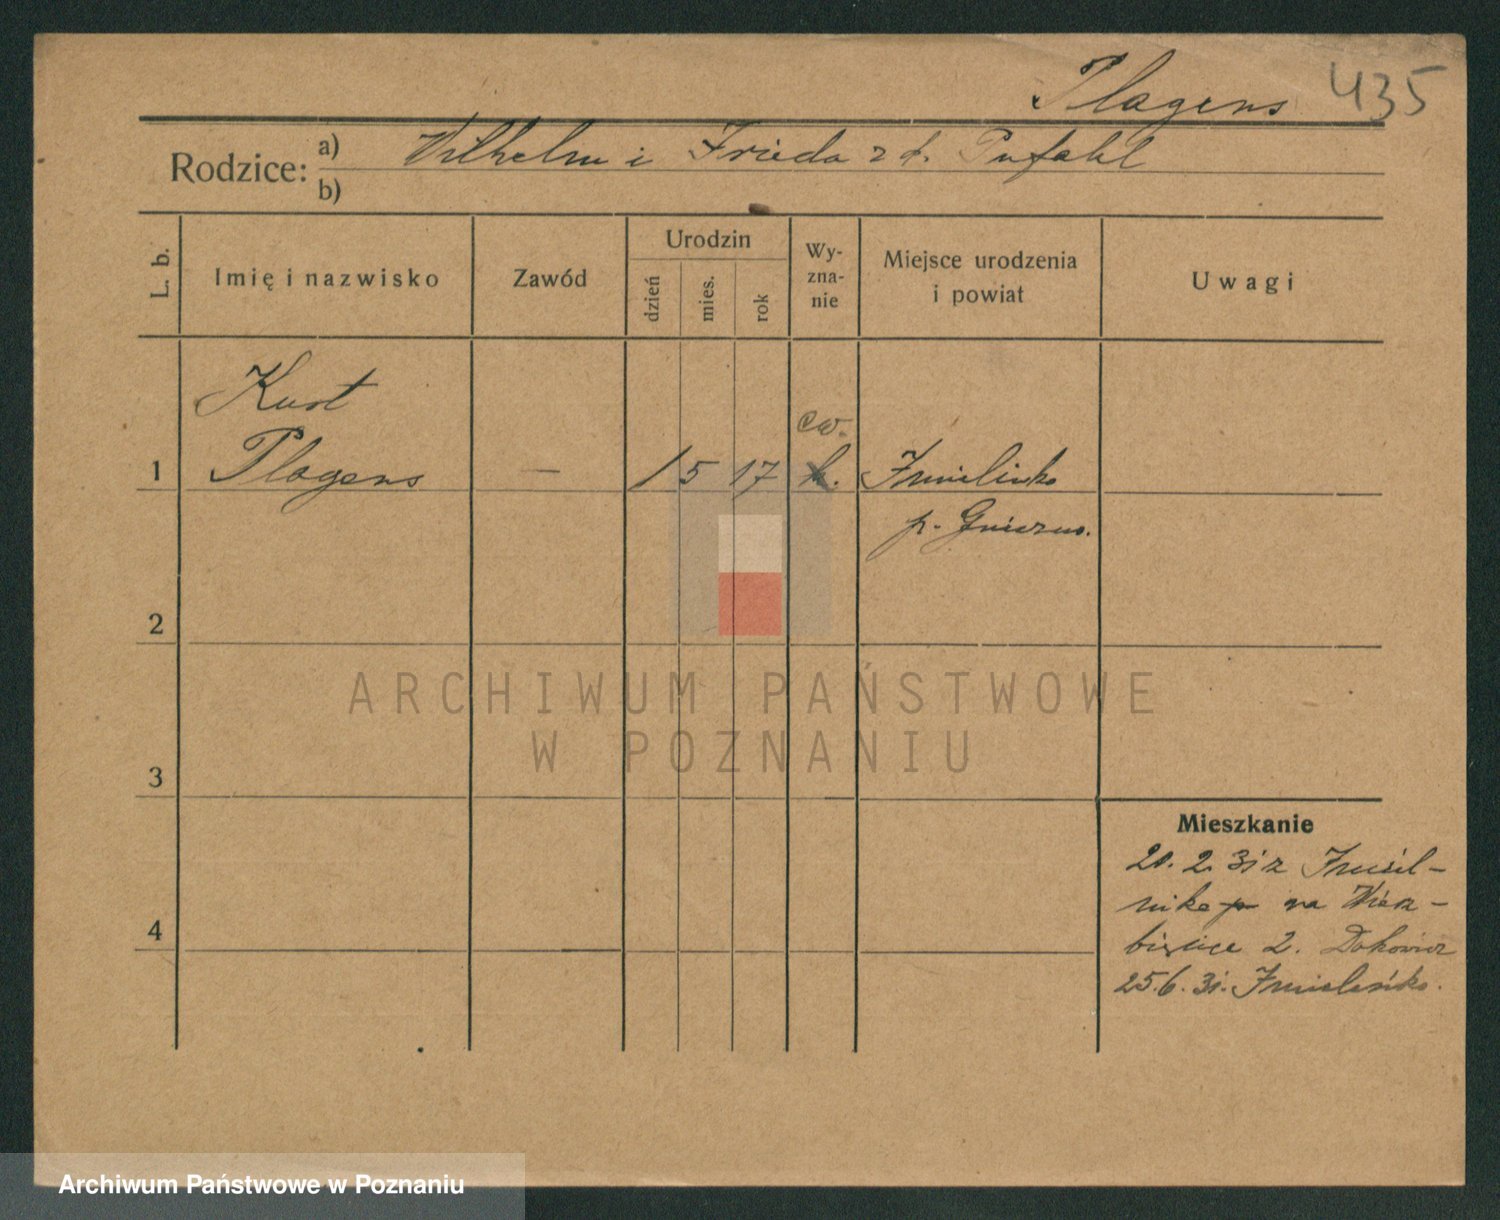 Plagens 435
Rodzice: a) Wilhelm i Frieda z d. Pufahl
b)
L. b.
Imię i nazwisko
Zawód
Urodzin
dzień
mies.
rok
Wy-
zna-
nie
Miejsce urodzenia
i powiat
Uwagi
Kurt
ew.
1 Plagens — 1 5 17 k. Imielinko
p. Gniezno.
2
3
4
ARCHIWUM PAŃSTWOWE
W POZNANIU
Mieszkanie
20. 2. 31 z Imiel-
nika na Wierz-
bięcice 2.
25. 6. 31. Imielinko.
Archiwum Państwowe w Poznaniu